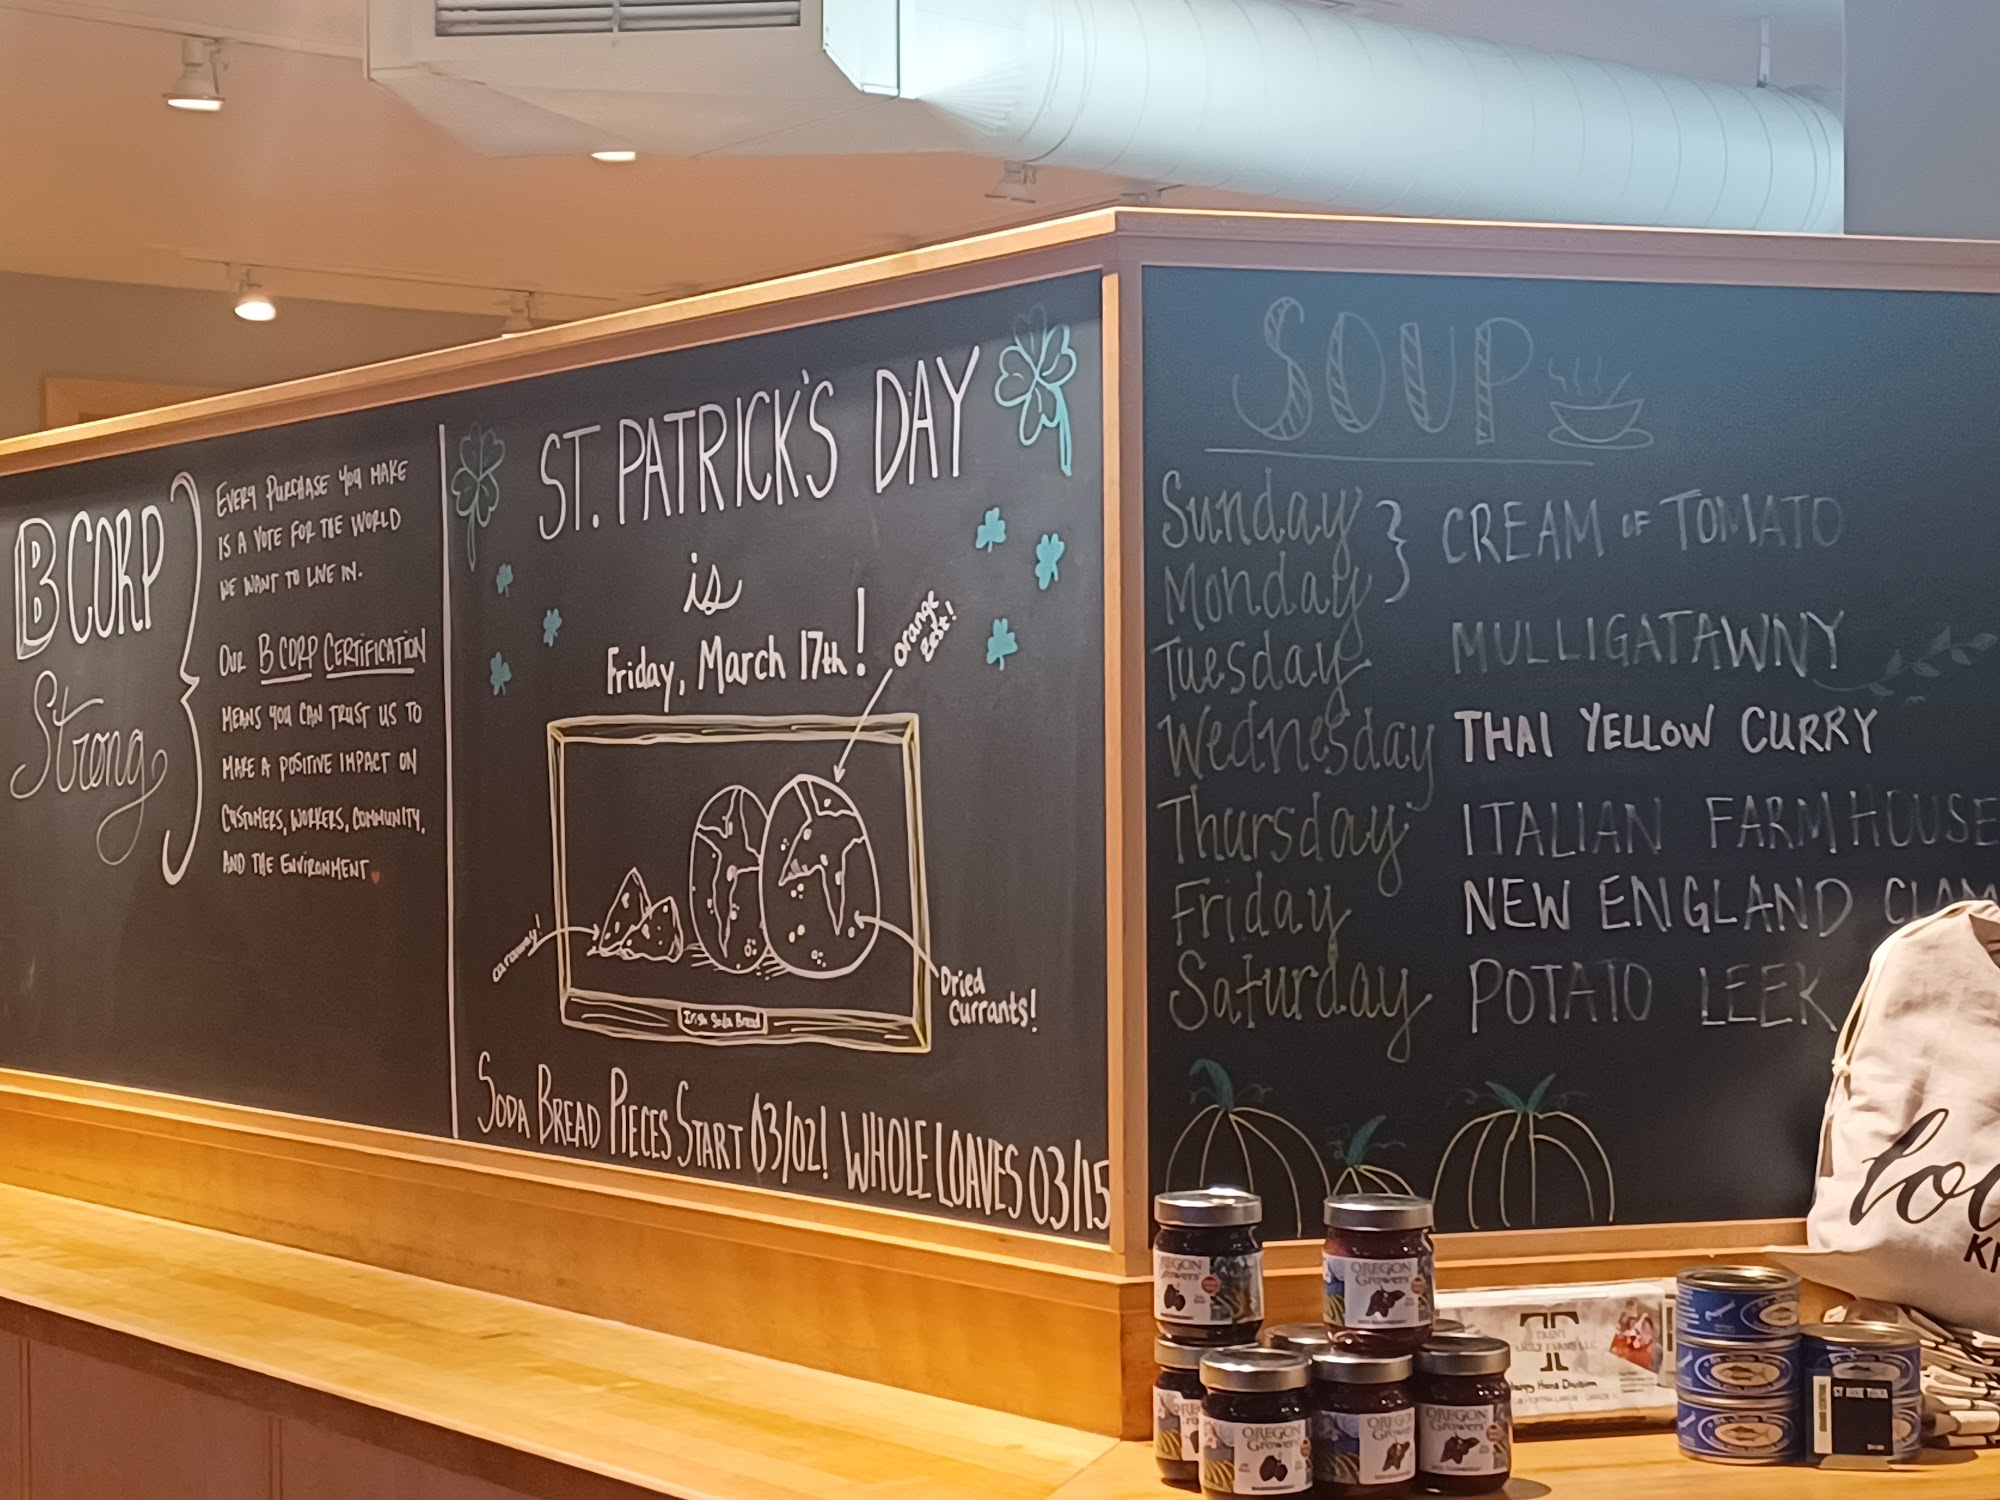 B CORP
Strong
EVERY PURCHASE YOU MAKE
IS A VOTE FOR THE WORLD
WE WANT TO LIVE IN.
OUR B CORP CERTIFICATION
MEANS YOU CAN TRUST US TO
MAKE A POSITIVE IMPACT ON
CUSTOMERS, WORKERS, COMMUNITY,
AND THE ENVIRONMENT
ST. PATRICK'S DAY
is
Friday, March 17th!
Orange
Zest!
caraway!
Dried
Currants!
Irish Soda Bread
SODA BREAD PIECES START 03/02! WHOLE LOAVES 03/15
SOUP
Sunday } CREAM OF TOMATO
Monday
Tuesday MULLIGATAWNY
Wednesday THAI YELLOW CURRY
Thursday ITALIAN FARMHOUSE
Friday NEW ENGLAND CLAM
Saturday POTATO LEEK
OREGON
Growers
OREGON
Growers
OREGON
Growers
OREGON
Growers
OREGON
Growers
Happy Hens Division